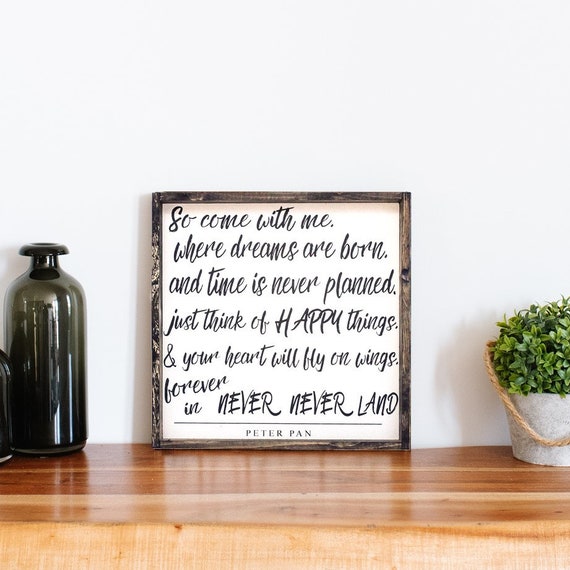 So come with me.
where dreams are born.
and time is never planned.
just think of HAPPY things.
& your heart will fly on wings.
forever
in NEVER NEVER LAND
PETER PAN